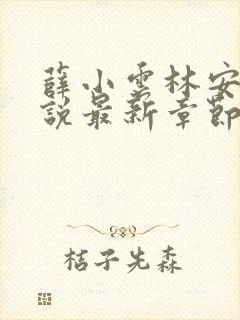 薛小雪林安
說最新章節
桔子先森